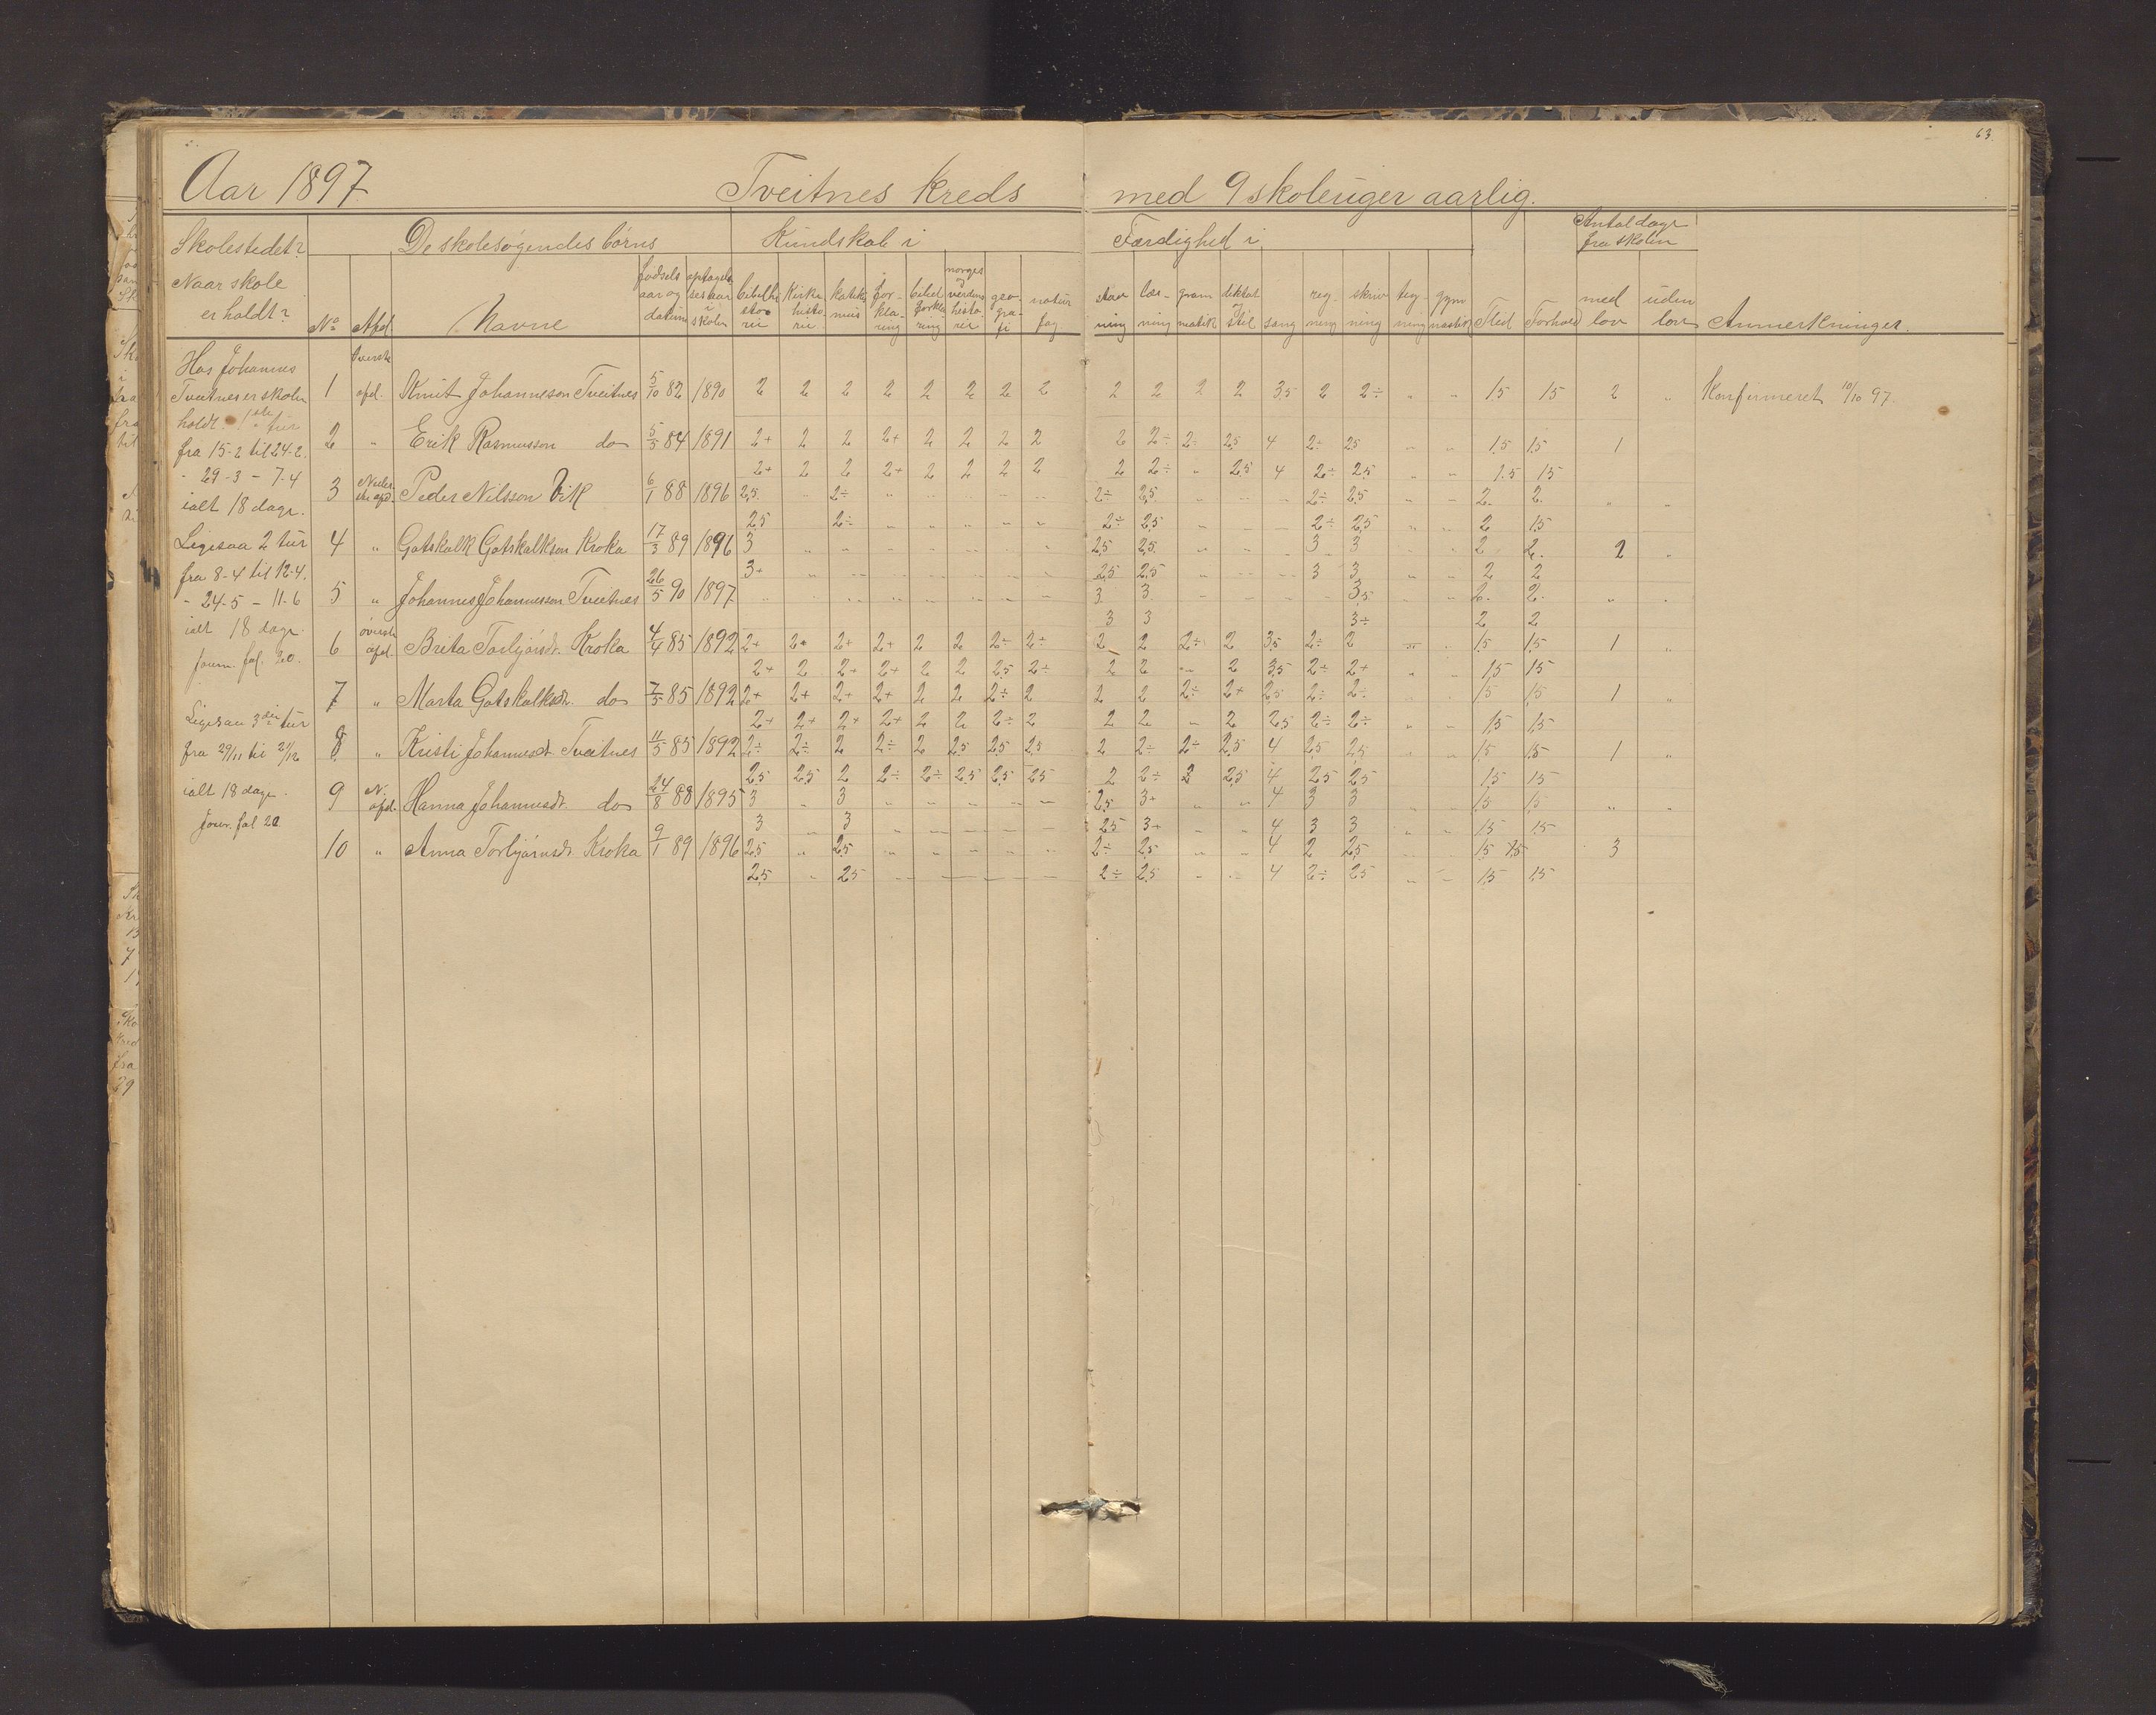 63.
Aar 1897 Tveitnes Kreds med 9 skoleuger aarlig.
Skolestedet? De skolesøgendes børns Kundskab i Færdighed i Antal dage fra skolen
Naar skole er holdt? No Afd. Navne fødsels aar og datum optagelses aar i skolen bibelhistorie Kirkehistorie katekismus forklaring bibelforklaring norges og verdens historie geografi naturfag stavning læsning gramatik diktat og stil sang regning skrivning tegning gymnastik Flid Forhold med lov uden lov Anmerkninger.
Hos Johannes
Tveitnes er skolen
holdt 1ste tur
fra 15-2 til 24-2.
- 29-3 - 7-4
ialt 18 dage.
Ligesaa 2 tur
fra 8-4 til 12-4.
- 24-5 - 11-6
ialt 18 dage
journ. fol. 20.
Ligesaa 3die tur
fra 29/11 til 21/12
ialt 18 dage.
Jour. fol 20
1 øverste afd. Knut Johannesson Tveitnes 5/10 82 1890 2 2 2 2 2 2 2 2 2 2 2 2 3,5 2 2÷ " " 1,5 1,5 2 " Konfirmeret 10/10 97.
2 " Erik Rasmusson do 5/5 84 1891 2+ 2 2 2+ 2 2 2 2 2 2÷ 2÷ 2,5 4 2÷ 2,5 " " 1,5 1,5 1
2+ 2 2 2+ 2 2 2 2 2 2÷ " 2,5 4 2÷ 2,5 " " 1.5 1.5
3 Nederste afd. Peder Nilsson Vik 6/1 88 1896 2,5 2÷ " " " " " 2÷ 2,5 " " " 2÷ 2,5 " " 2 2 " "
2,5 2÷ " " " " " 2÷ 2,5 " " " 2÷ 2,5 " " 2 1,5
4 " Gotskalk Gotskalkson Kroka 17/3 89 1896 3 " " " " " " " 2,5 2,5 " " " 3 3 " " 2 2 2 "
3+ " " " " " " " 2,5 2,5 " " " 3 3 " " 2 2
5 " Johannes Johannesson Tveitnes 26/5 90 1897 " " " " " " " " 3 3 3,5 " " 2 2 " "
3 3 3÷ 2 2
6 øverste afd. Brita Torbjørnsdt. Kroka 4/4 85 1892 2+ 2+ 2+ 2+ 2 2 2÷ 2÷ 2 2 2÷ 2 3,5 2÷ 2 " " 1,5 1,5 1 "
2+ 2 2+ 2+ 2 2 2,5 2÷ 2 2 " 2 3,5 2÷ 2+ " " 1,5 1,5
7 " Marta Gotskalksdt. do 7/5 85 1892 2+ 2+ 2+ 2+ 2 2 2÷ 2 2 2 2÷ 2+ 2,5 2÷ 2÷ " " 1,5 1,5 1 "
2+ 2+ 2+ 2+ 2 2 2÷ 2 2 2 " 2 2,5 2÷ 2÷ " " 1,5 1,5
8 " Kristi Johannesdt Tveitnes 11/5 85 1892 2÷ 2÷ 2 2÷ 2 2,5 2,5 2,5 2 2÷ 2÷ 2,5 4 2,5 2,5 " " 1,5 1,5 1 "
2,5 2,5 2 2÷ 2÷ 2,5 2,5 2,5 2 2÷ 3 2,5 4 2,5 2,5 1,5 1,5
9 N. afd. Hanna Johannesdt. do 24/8 88 1895 3 " 3 " " " " " 2,5 3+ " " 4 3 3 " " 1,5 1,5 " "
3 " 3 " " " " " 2,5 3+ " " 4 3 3 " " 1,5 1,5
10 " Anna Torbjørnsdt Kroka 9/1 89 1896 2,5 " 2,5 " " " " " 2÷ 2,5 " " 4 2 2,5 " " 1,5 1,5 3
2,5 " 2,5 " " " " " 2÷ 2,5 " " 4 2÷ 2,5 " " 1,5 1,5